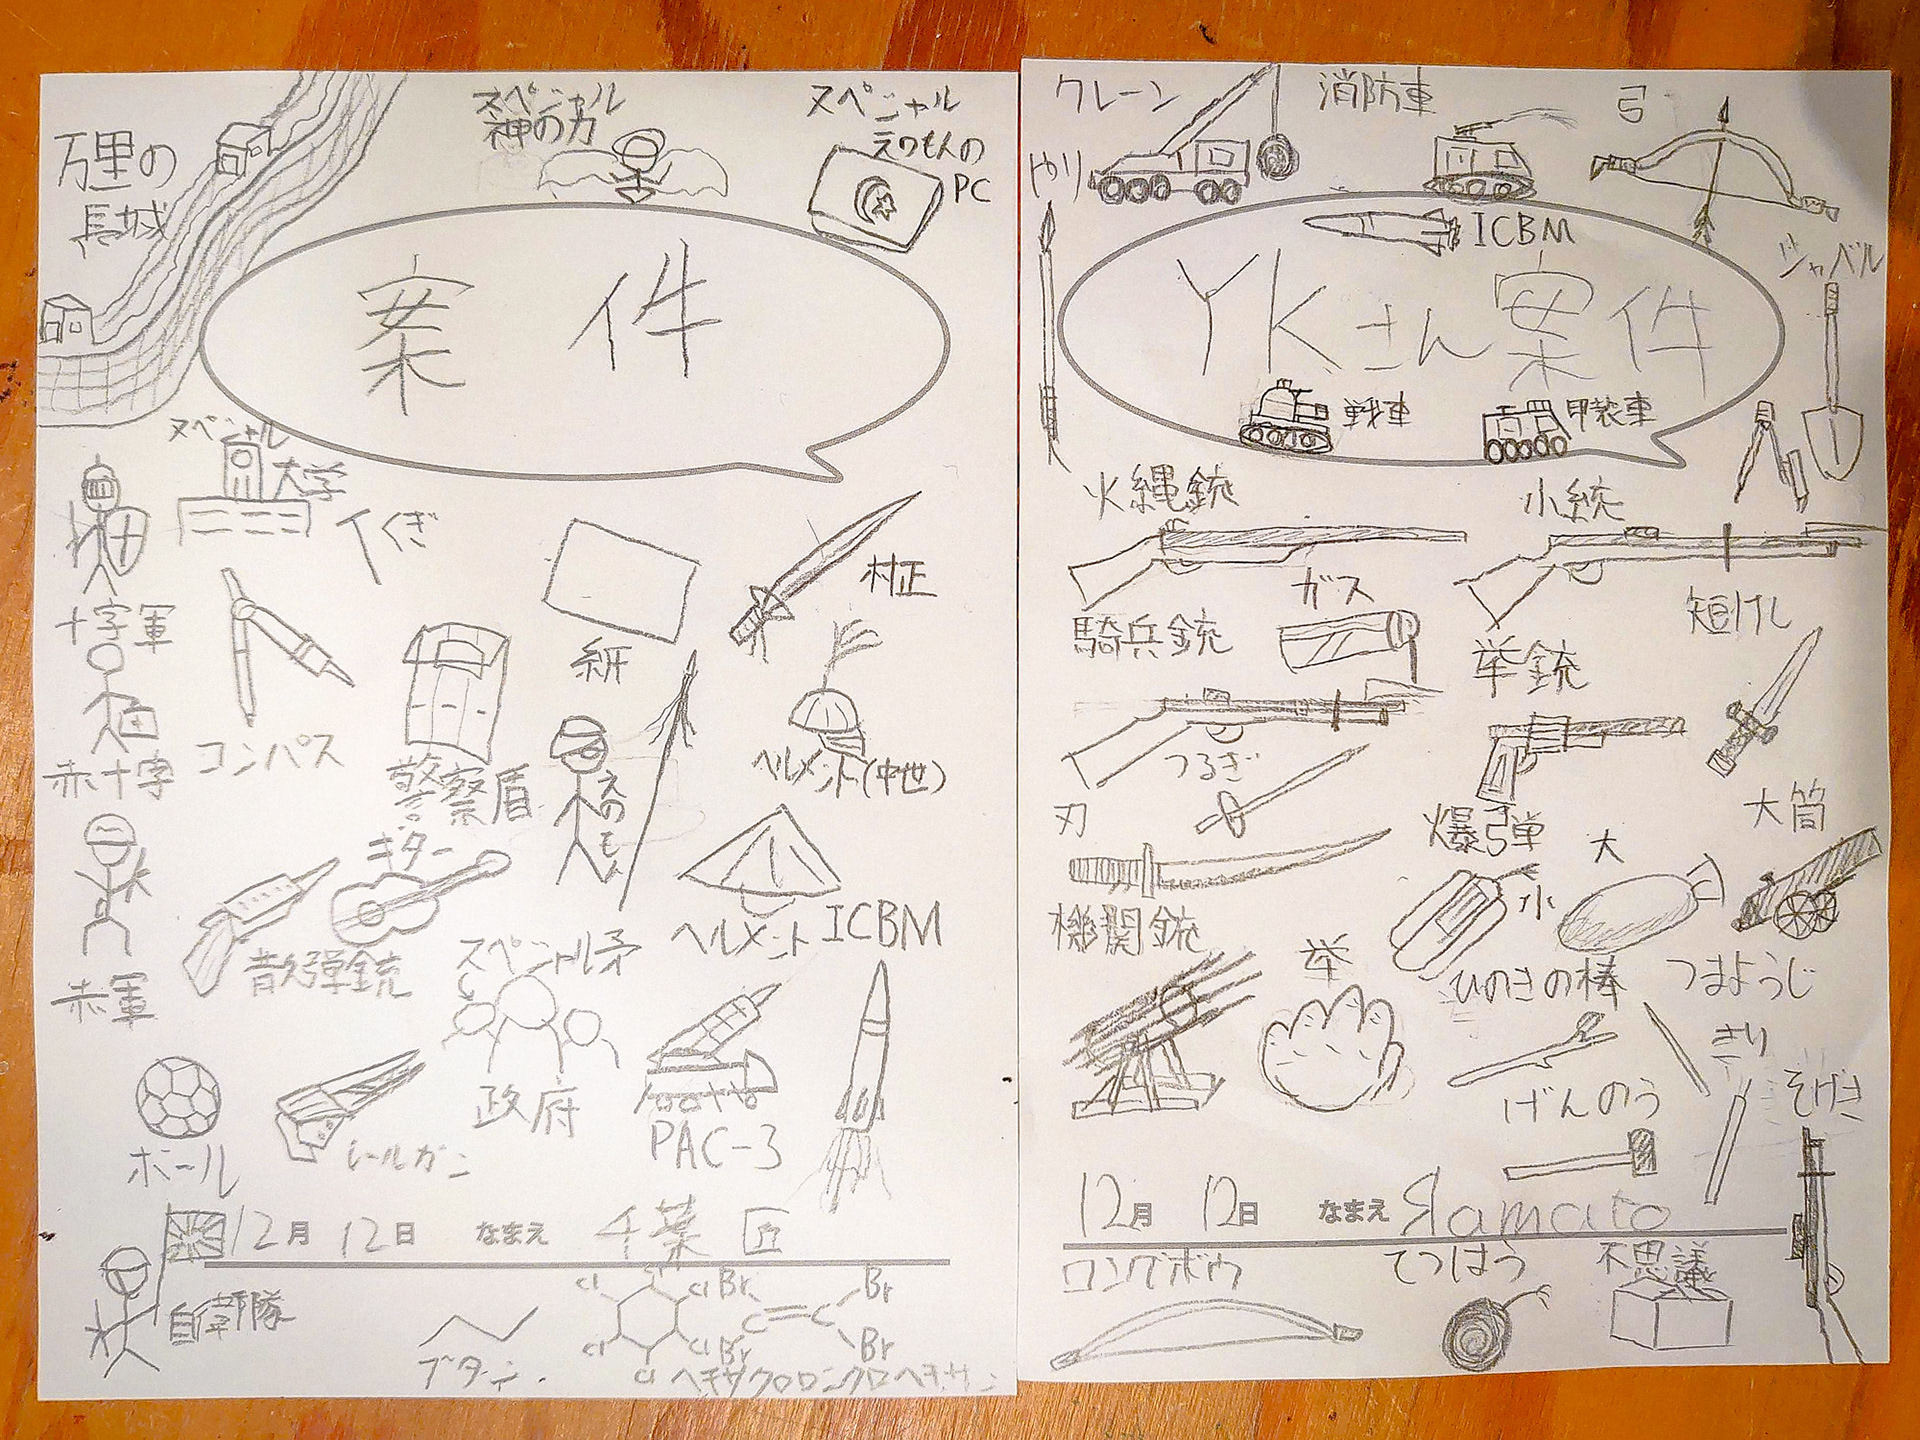 万里の
長城
スペシャル
神の力
スペシャル
えのもんの
PC
案件
スペシャル
大学
くぎ
十字軍
コンパス
紙
村正
赤十字
警察盾
えのもん
ヘルメット(中世)
赤軍
散弾銃
ギター
スペシャル矛
ヘルメット
ICBM
ボール
レールガン
政府
PAC-3
12月 12日 なまえ 千葉 匠
自衛隊
ブタン.
Cl
Cl
Cl
Cl
Cl
Br
C=C
Br
Br
Br
クレーン
消防車
弓
ICBM
シャベル
YKさん案件
戦車
甲装車
火縄銃
小銃
ガス
短けん
騎兵銃
挙銃
つるぎ
刃
爆弾
大
小
大筒
機関銃
挙
ひのきの棒
つまようじ
きり
げんのう
そげき
12月 12日 なまえ Яamato
ロングボウ
てつはう
不思議